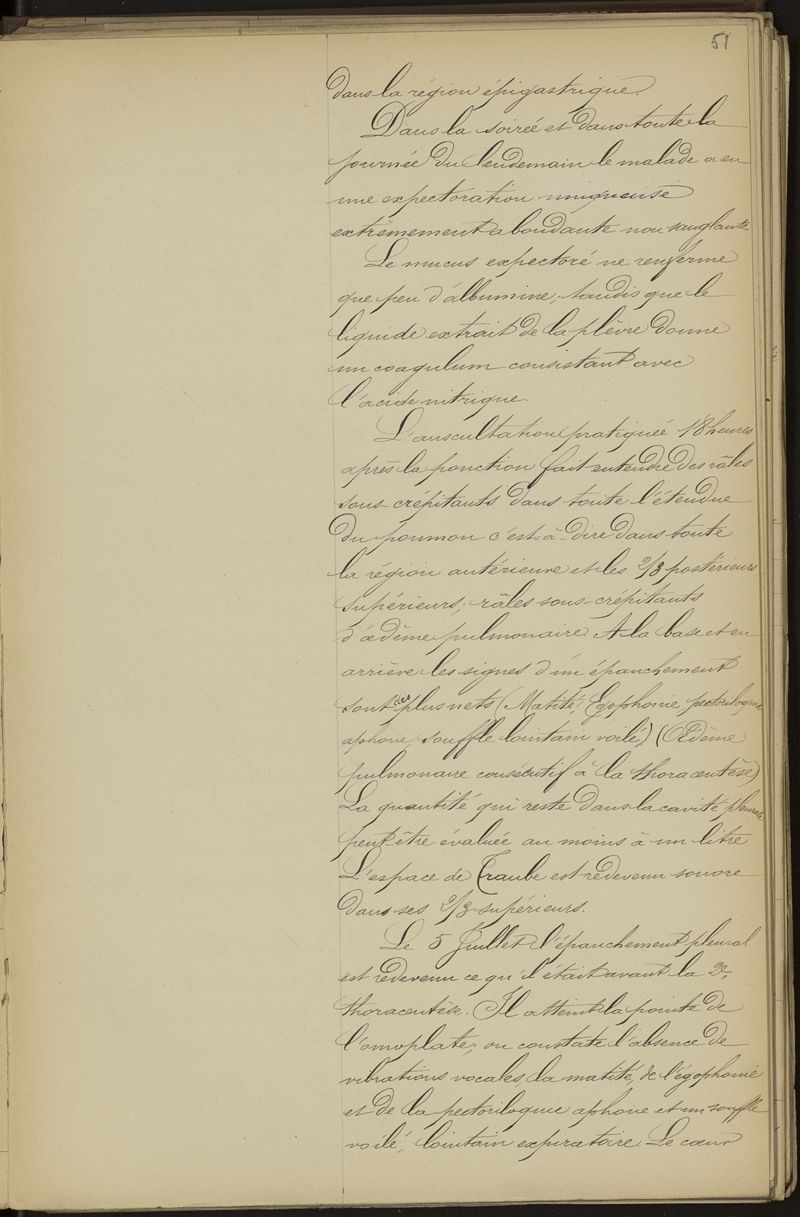 51
dans la région épigastrique.
Dans la soirée et dans toute la
journée du lendemain le malade a eu
une expectoration muqueuse
extrêmement abondante non sanglante
Le mucus expectoré ne renferme
que peu d'albumine, tandis que le
liquide extrait de la plèvre donne
un coagulum consistant avec
l'acide nitrique.
L'auscultation pratiquée 18 heures
après la ponction fait entendre des râles
sous-crépitants dans toute l'étendue
du poumon c'est-à-dire dans toute
la région antérieure et les 2/3 postérieurs
supérieurs; râles sous-crépitants
d'œdème pulmonaire A la base et en
arrière les signes d'un épanchement
sont des plus nets (Matité, Egophonie pectoriloquie
aphone, souffle lointain voilé) (Œdème
pulmonaire consécutif à la thoracentèse)
La quantité qui reste dans la cavité pleurale
peut être évaluée au moins à un litre
L'espace de Traube est redevenu sonore
dans ses 2/3 supérieurs.
Le 5 Juillet l'épanchement pleural
est redevenu ce qu'il était avant la 2e
thoracentèse. Il atteint la pointe de
l'omoplate; on constate l'absence de
vibrations vocales, la matité, de l'égophonie
et de la pectoriloquie aphone et un souffle
voilé, lointain expiratoire. Le cœur